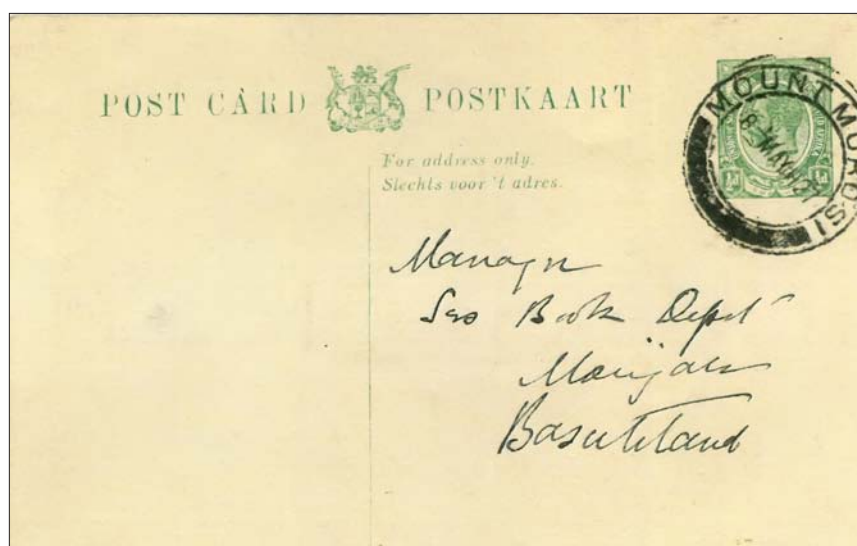 POST CARD POSTKAART
For address only.
Slechts voor 't adres.
MOUNT MOROSI
MAY
½d ½d
Manager
Ses Book Depot
Morija
Basutoland